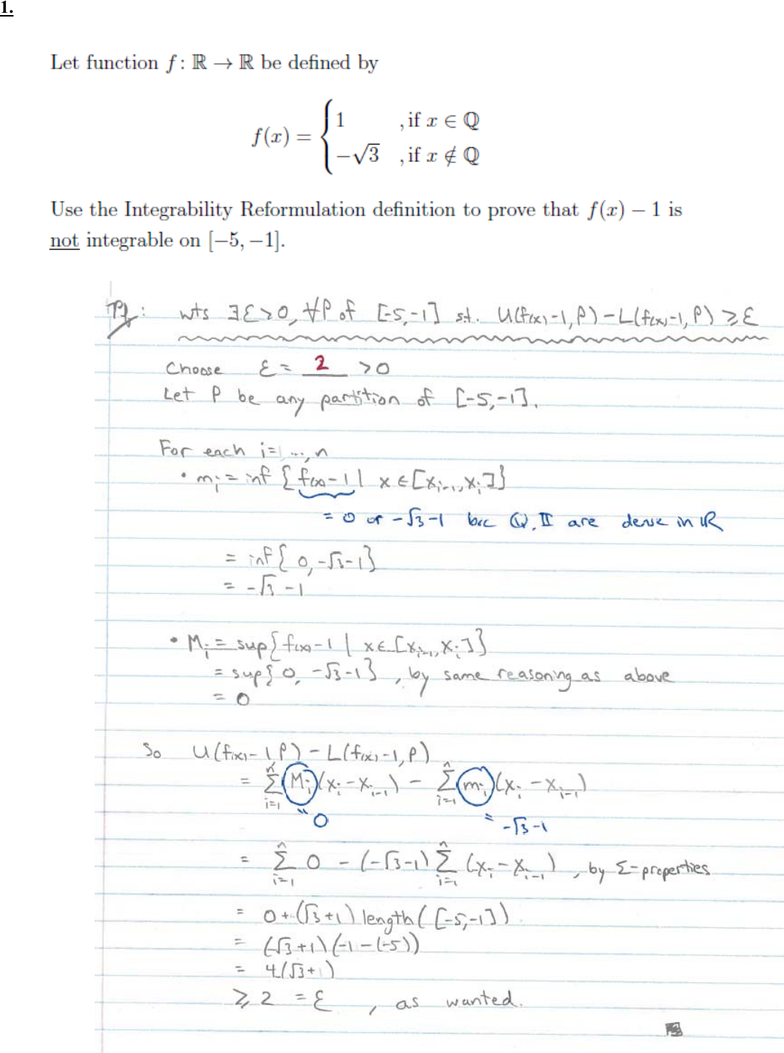 1.
Let function f: ℝ → ℝ be defined by
f(x) = { 1 , if x ∈ ℚ
−√3 , if x ∉ ℚ
Use the Integrability Reformulation definition to prove that f(x) − 1 is
not integrable on [−5, −1].
Pf: wts ∃ε>0, ∀P of [-5,-1] st. U(f(x)-1,P)-L(f(x)-1,P) ≥ ε
Choose ε = 2 >0
Let P be any partition of [-5,-1].
For each i=1,...,n
• mᵢ = inf { f(x)-1 | x ∈ [xᵢ₋₁,xᵢ] }
= 0 or -√3-1 b/c ℚ, 𝕀 are dense in ℝ
= inf { 0, -√3-1 }
= -√3-1
• Mᵢ = sup { f(x)-1 | x ∈ [xᵢ₋₁,xᵢ] }
= sup { 0, -√3-1 } , by same reasoning as above
= 0
So U(f(x)-1,P)-L(f(x)-1,P)
= Σᵢ₌₁ⁿ (Mᵢ)(xᵢ-xᵢ₋₁) - Σᵢ₌₁ⁿ (mᵢ)(xᵢ-xᵢ₋₁)
= 0 = -√3-1
= Σᵢ₌₁ⁿ 0 - (-√3-1) Σᵢ₌₁ⁿ (xᵢ-xᵢ₋₁) , by Σ-properties
= 0+(√3+1) length([-5,-1])
= (√3+1)(-1-(-5))
= 4(√3+1)
≥ 2 = ε , as wanted.